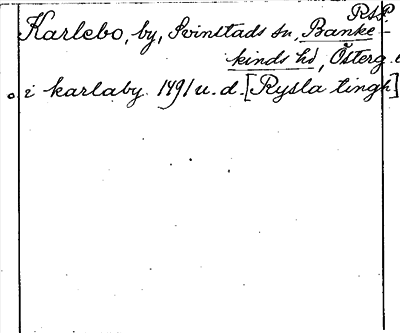 RSP.
Karlebo, by, Svinstads sn, Banke-
kinds hd, Österg.
i karlaby. 1491 u.d. [Rysla tingh]